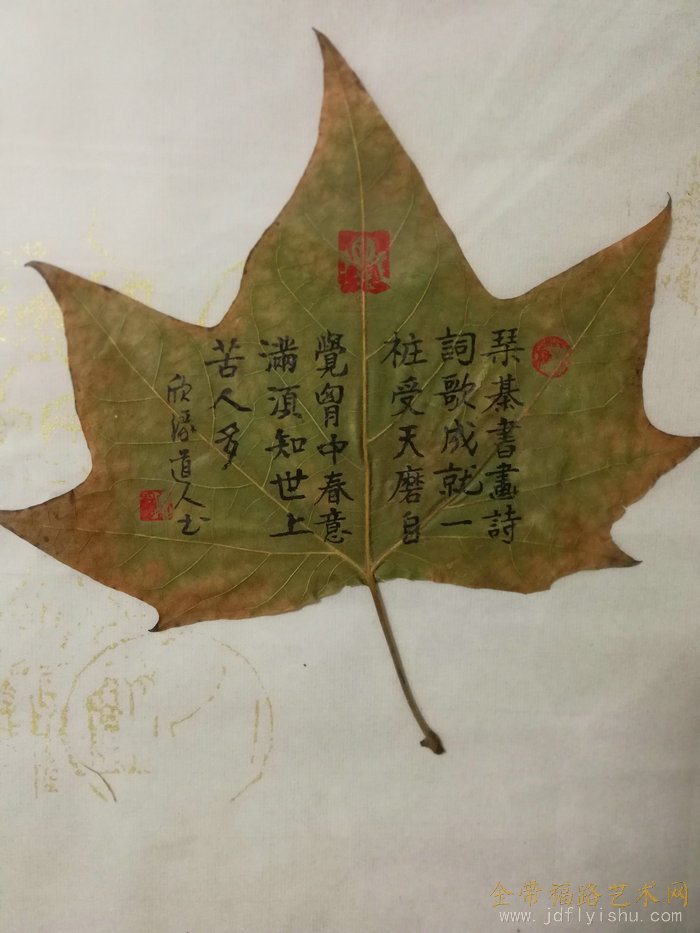 琹棊書畫詩
詞歌成就一
桩受天磨自
覺胷中春意
滿須知世上
苦人多
欣缘道人书
金带福路艺术网
www.jdflyishu.com